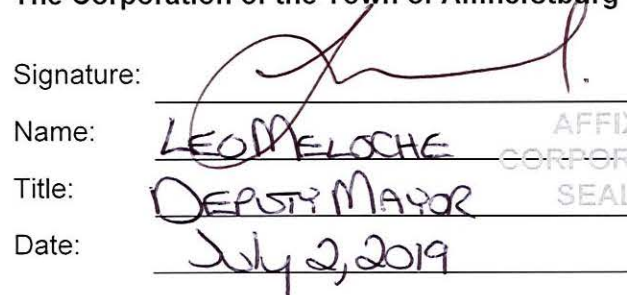 The Corporation of the Town of Amherstburg
Signature:
Name: LEO MELOCHE
Title: DEPUTY MAYOR
Date: July 2, 2019
AFFIX
CORPOR
SEAL